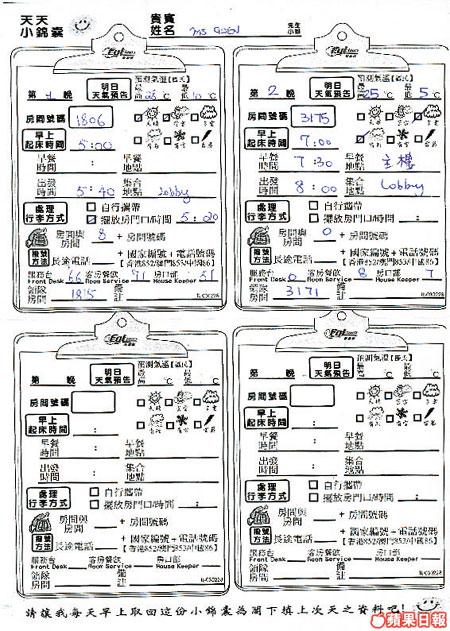 天天
小錦囊
貴賓
姓名
先生
小姐
EGL tours
第 1 晚
明日
天氣預告
預測氣溫【攝氏】
最高 ℃ 最低 ℃
房間號碼 1806
早上
起床時間 5:00
早餐
時間 : 早餐
地點
出發
時間 5:40 集合
地點 lobby
處理
行李方式
自行攜帶
擺放房門口/時間 5:00
房間與
房間 8 + 房間號碼
撥號
方法
長途電話 + 國家編號 + 電話號碼
【香港852/澳門853/中國86】
服務台 客房餐飲 房口部
Front Desk 66 Room Service 71 House Keeper 51
領隊
房間 1815 備註
第 2 晚
明日
天氣預告
預測氣溫【攝氏】
最高 25 ℃ 最低 5 ℃
房間號碼 3175
早上
起床時間 7:00
早餐
時間 7:30 早餐
地點 主樓
出發
時間 8:00 集合
地點 Lobby
處理
行李方式
自行攜帶
擺放房門口/時間 :
房間與
房間 0 + 房間號碼
撥號
方法
長途電話 + 國家編號 + 電話號碼
【香港852/澳門853/中國86】
服務台 客房餐飲 房口部
Front Desk 0 Room Service 8 House Keeper 7
領隊
房間 3171 備註
EGL tours
第 晚
明日
天氣預告
預測氣溫【攝氏】
最高 ℃ 最低 ℃
房間號碼
早上
起床時間 :
早餐
時間 : 早餐
地點
出發
時間 : 集合
地點
處理
行李方式
自行攜帶
擺放房門口/時間 :
房間與
房間 + 房間號碼
撥號
方法
長途電話 + 國家編號 + 電話號碼
【香港852/澳門853/中國86】
服務台 客房餐飲 房口部
Front Desk Room Service House Keeper
領隊
房間 備註
第 晚
明日
天氣預告
預測氣溫【攝氏】
最高 ℃ 最低 ℃
房間號碼
早上
起床時間 :
早餐
時間 : 早餐
地點
出發
時間 : 集合
地點
處理
行李方式
自行攜帶
擺放房門口/時間 :
房間與
房間 + 房間號碼
撥號
方法
長途電話 + 國家編號 + 電話號碼
【香港852/澳門853/中國86】
服務台 客房餐飲 房口部
Front Desk Room Service House Keeper
領隊
房間 備註
請讓我每天早上取回這份小錦囊為閣下填上次天之資料吧!
蘋果日報